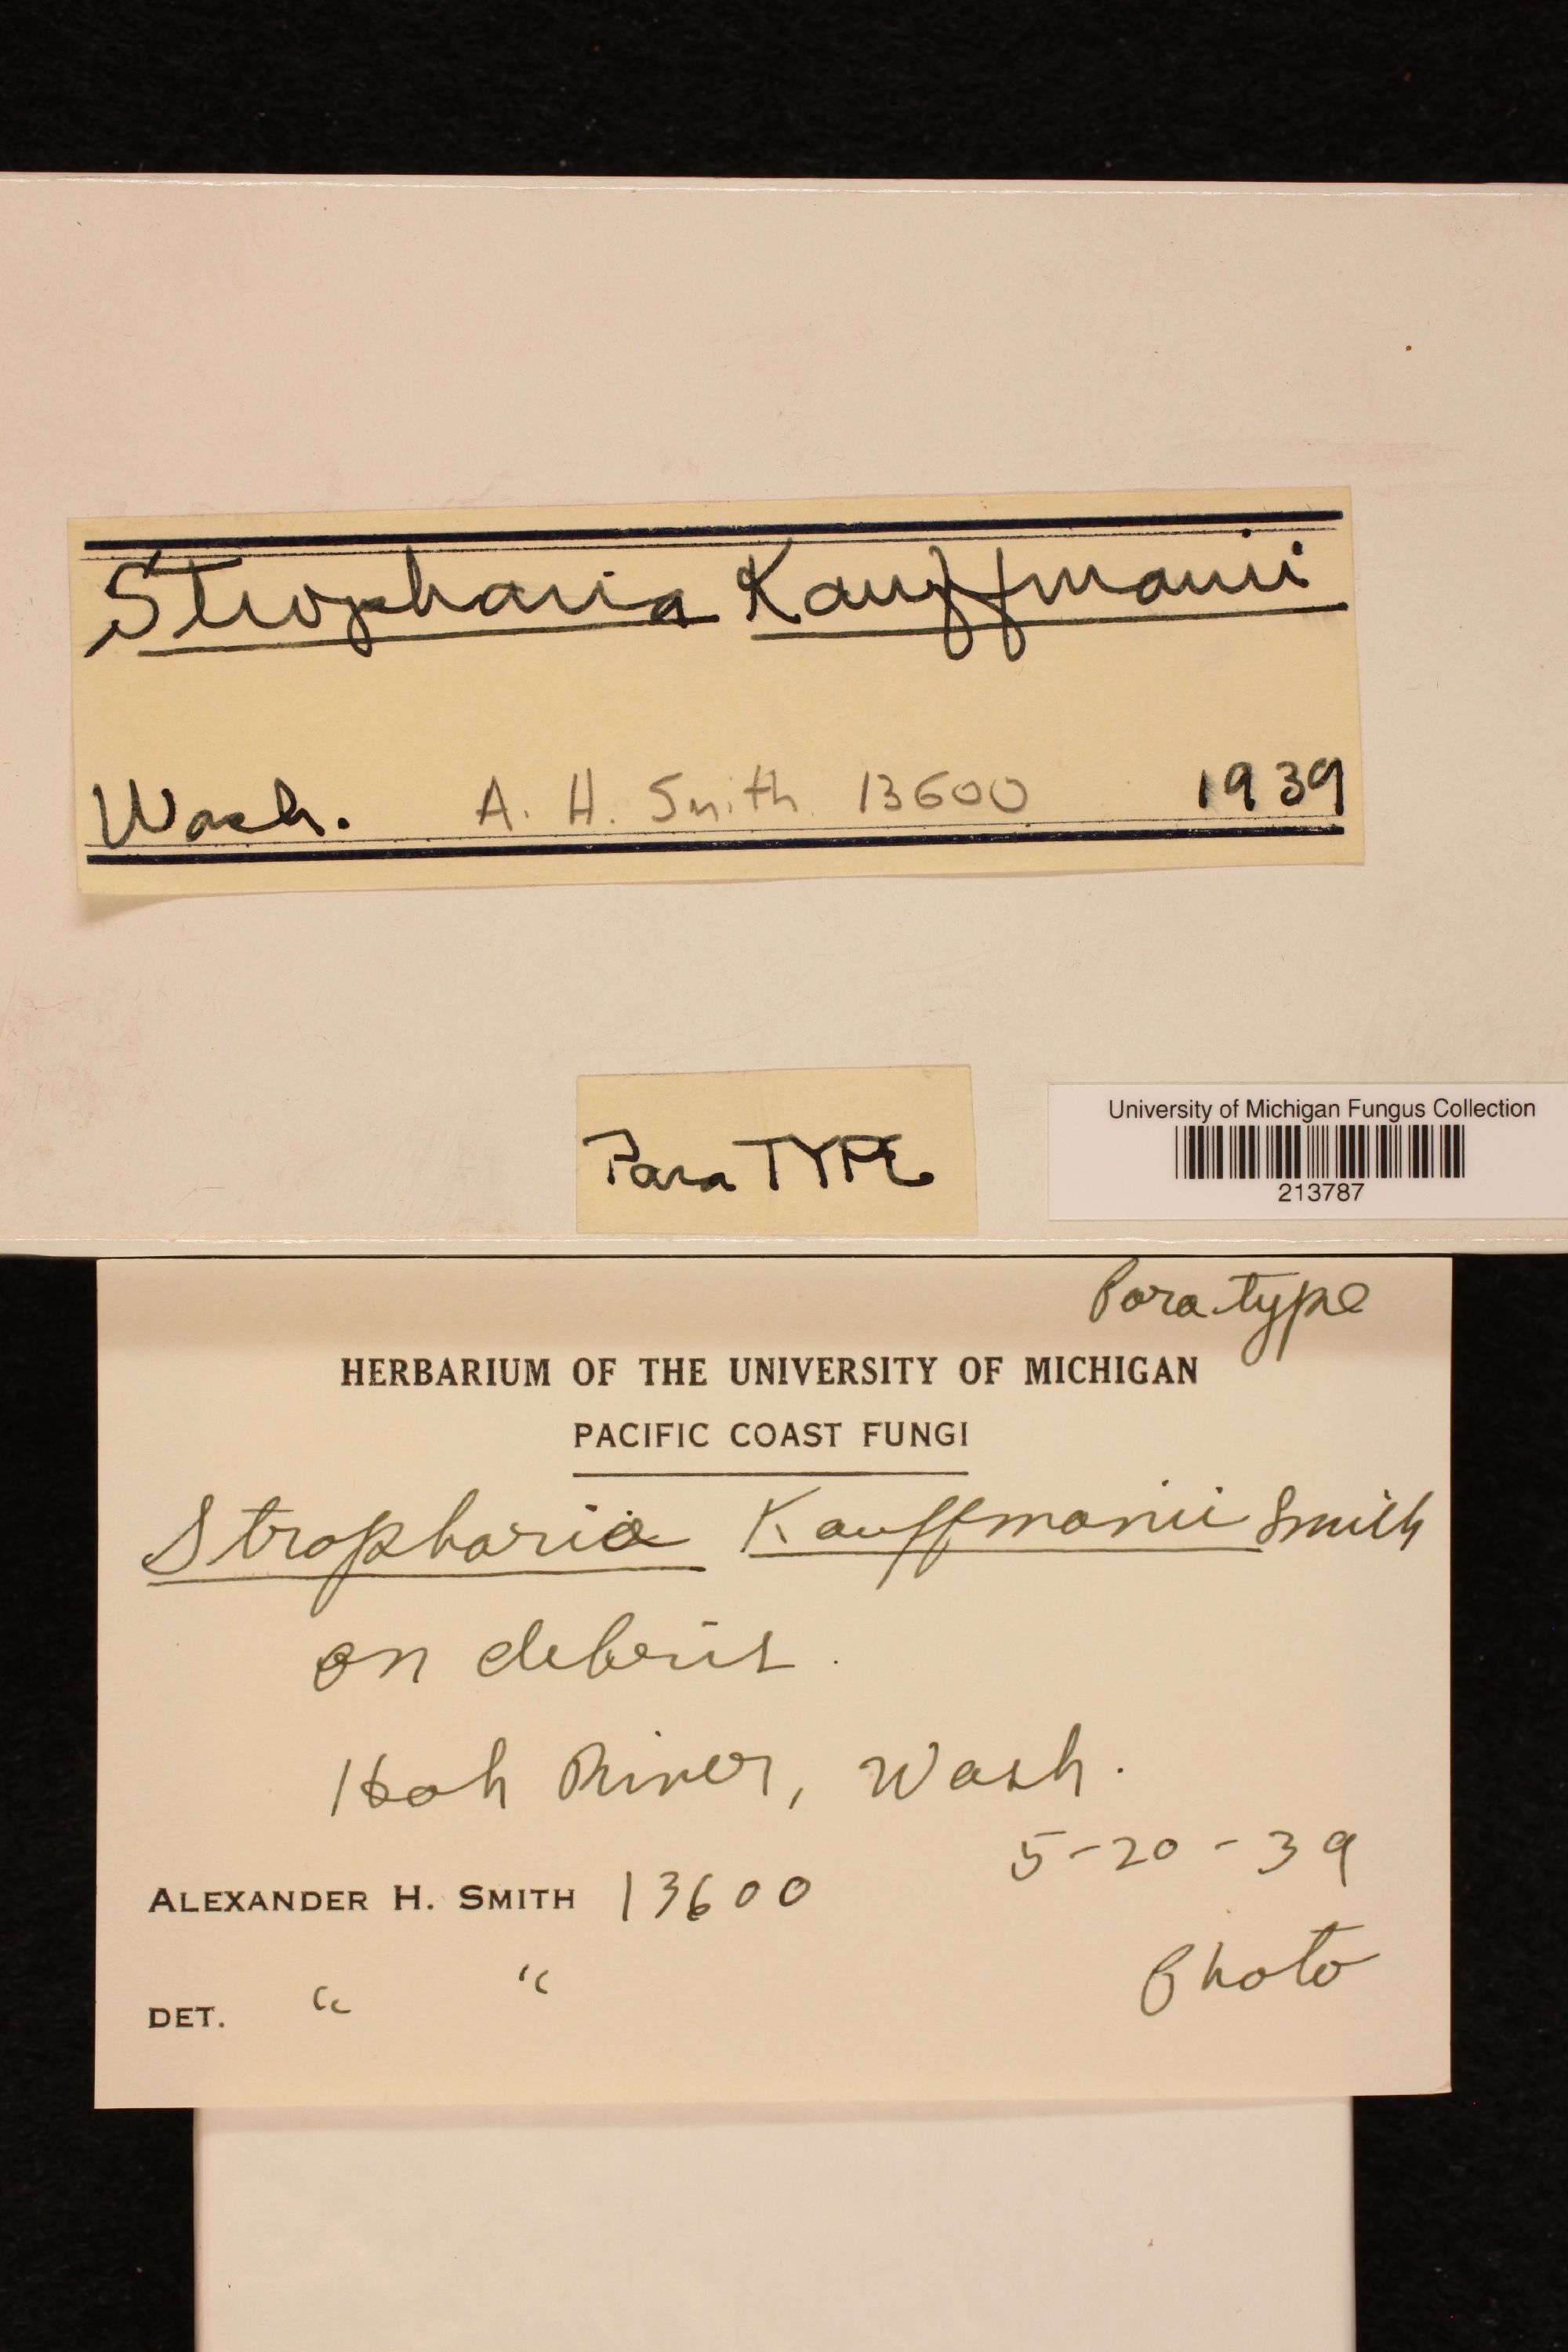 Stropharia Kauffmanii
Wash. A. H. Smith 13600 1939
ParaTYPE
University of Michigan Fungus Collection
213787
Paratype
HERBARIUM OF THE UNIVERSITY OF MICHIGAN
PACIFIC COAST FUNGI
Stropharia Kauffmanii Smith
on debris.
Hoh River, Wash.
5-20-39
ALEXANDER H. SMITH 13600
DET. " "
Photo